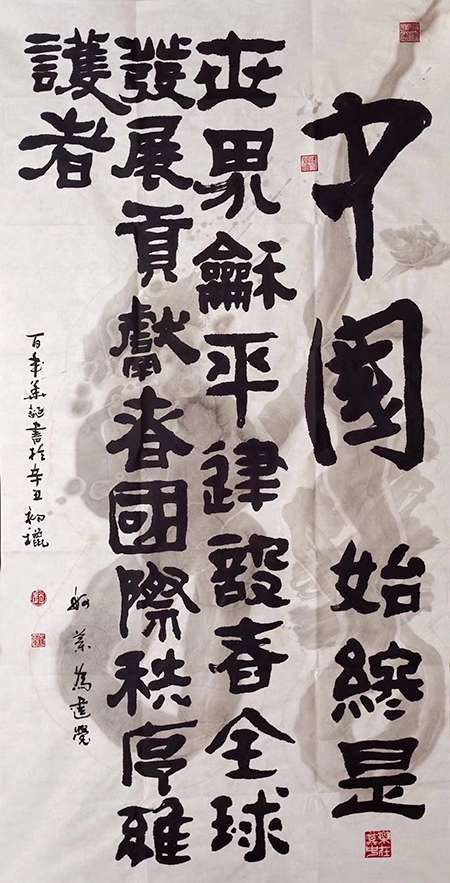 中國始終是
世界龢平建設者全球
發展貢獻者國際秩序維
護者
為建黨
百年華誕書於辛丑初